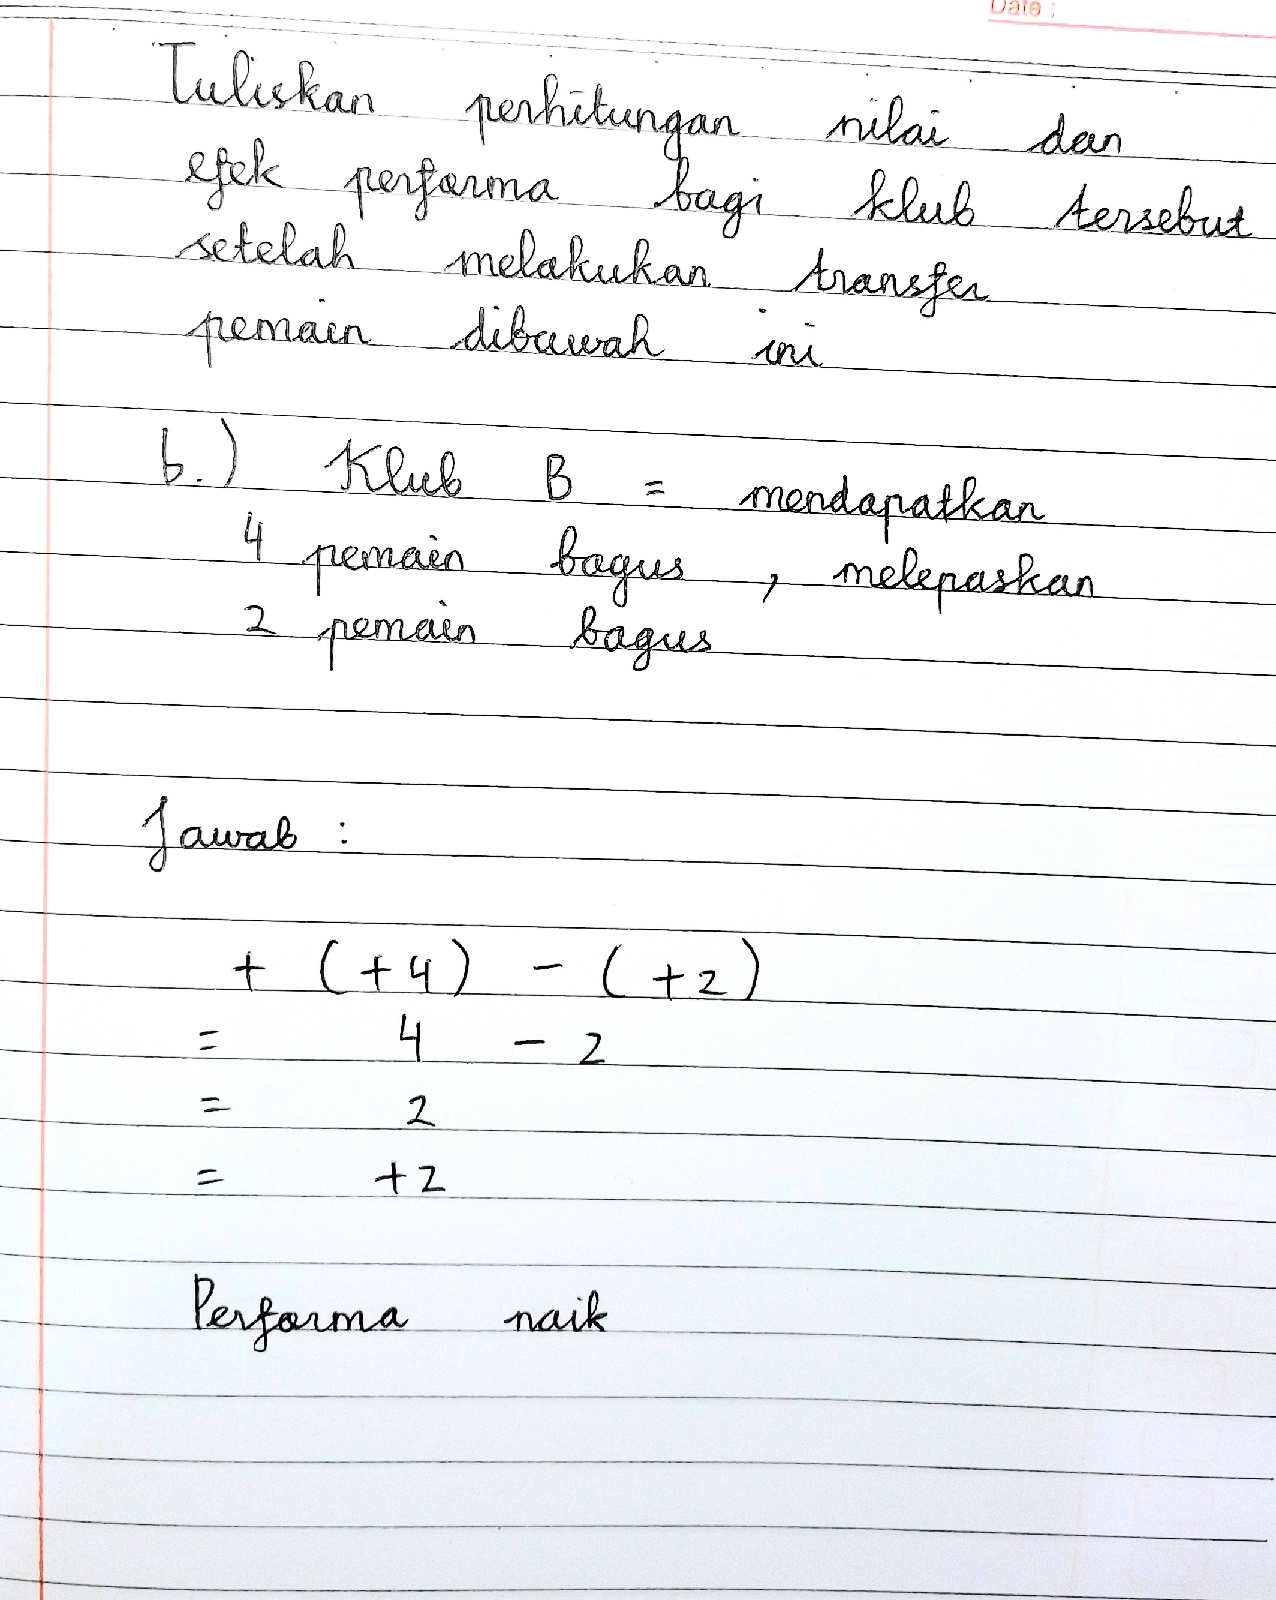 Date :
Tuliskan perhitungan nilai dan
efek performa bagi klub tersebut
setelah melakukan transfer
pemain dibawah ini
b.) Klub B = mendapatkan
4 pemain bagus , melepaskan
2 pemain bagus
Jawab :
+ (+4) - (+2)
= 4 - 2
= 2
= +2
Performa naik